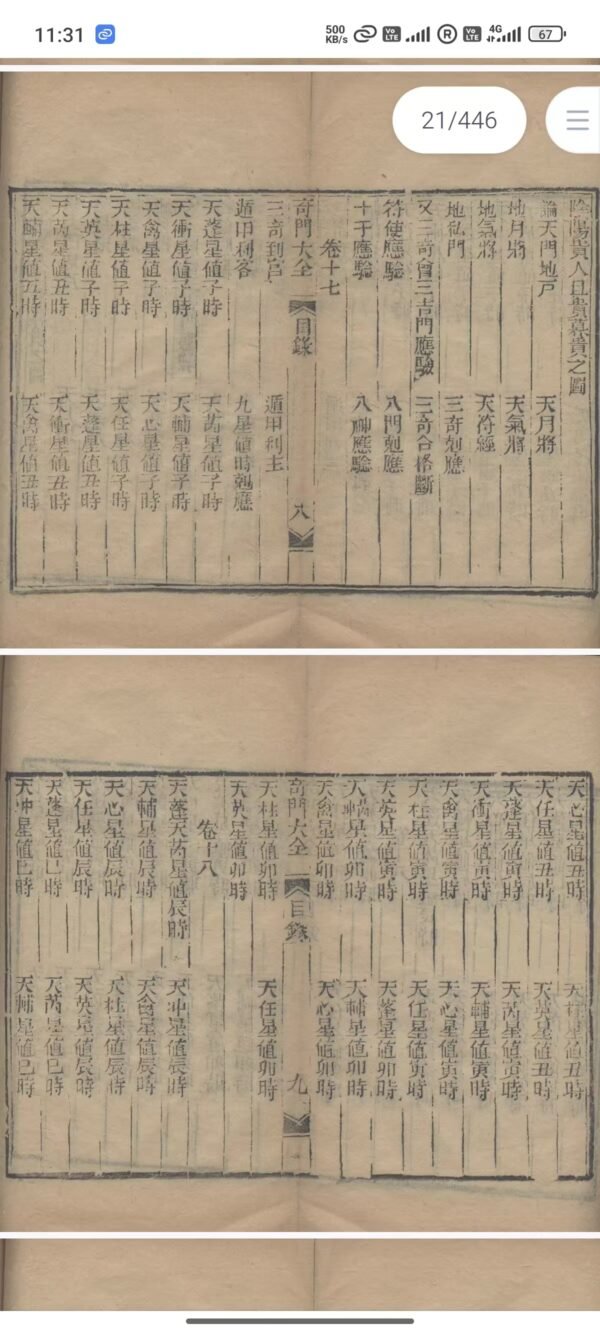 11:31
500 KB/s
Vo LTE
R
Vo LTE
4G
67
21/446
陰陽貴人旦貴暮貴之圖
論天門地戶
天月將
地月將
天氣將
地氣將
天符經
地私門
三奇剋應
又三奇會三吉門應驗
三奇合格斷
符使應驗
八門剋應
十干應驗
八神應驗
卷十七
奇門大全
目錄
八
三奇到宮
遁甲利主
遁甲利客
九星值時剋應
天蓬星值子時
天芮星值子時
天衝星值子時
天輔星值子時
天禽星值子時
天心星值子時
天柱星值子時
天任星值子時
天英星值子時
天蓬星值丑時
天芮星值丑時
天衝星值丑時
天輔星值丑時
天禽星值丑時
天心星值丑時
天柱星值丑時
天任星值丑時
天英星值丑時
天蓬星值寅時
天芮星值寅時
天衝星值寅時
天輔星值寅時
天禽星值寅時
天心星值寅時
天柱星值寅時
天任星值寅時
天英星值寅時
天蓬星值卯時
星值卯時
天輔星值卯時
天禽星值卯時
天心星值卯時
奇門大全
目錄
九
天柱星值卯時
天任星值卯時
天英星值卯時
卷十八
天蓬天芮星值辰時
天冲星值辰時
天輔星值辰時
天禽星值辰時
天心星值辰時
天柱星值辰時
天任星值辰時
天英星值辰時
天蓬星值巳時
天芮星值巳時
天冲星值巳時
天輔星值巳時